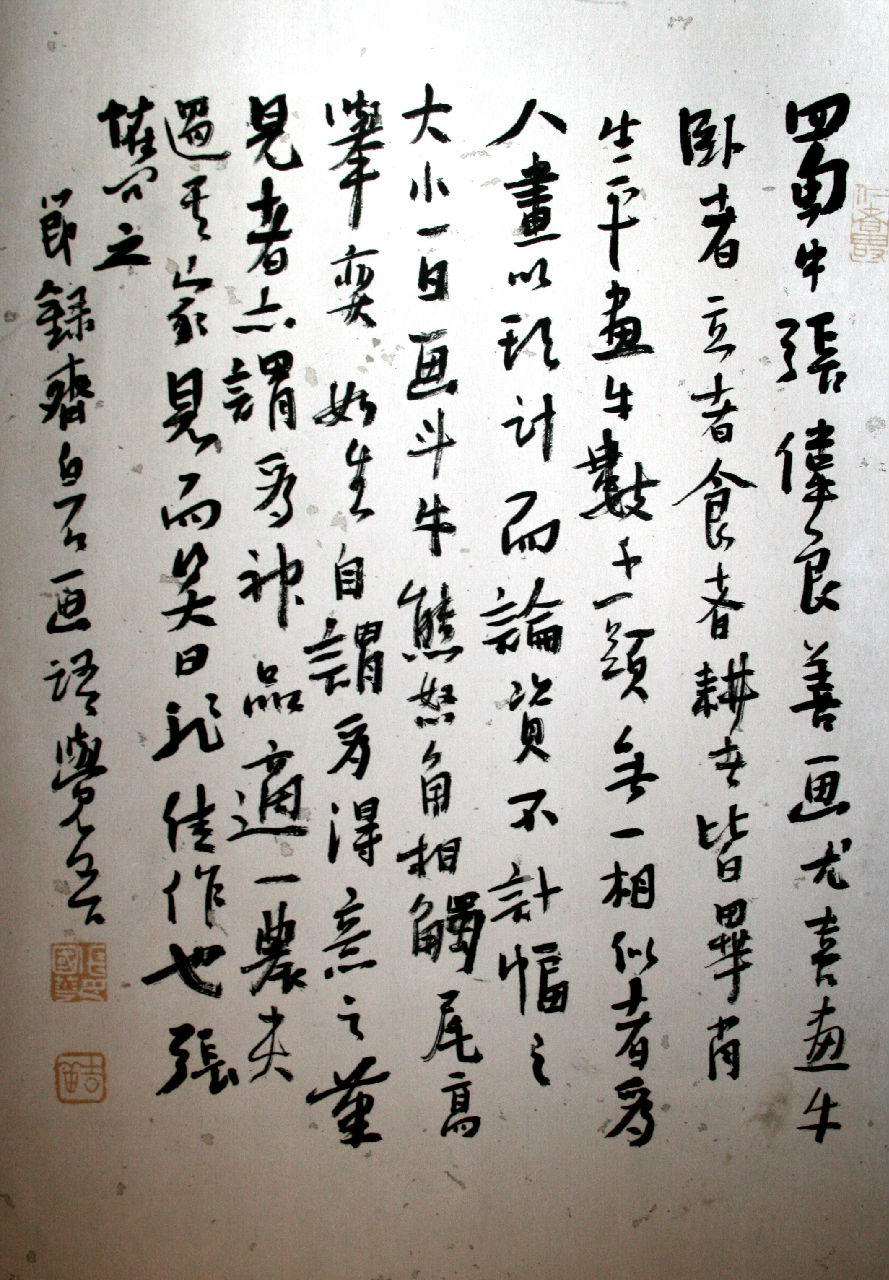 四勇牛張偉良善画尤喜畫牛
卧者立者食者耕者皆畢肖
生平畫牛數千頭無一相似者為
人畫以頭計而論資不計幅之
大小一日画斗牛態怒角相觸尾高
舉奕奕如生自謂為得意之筆
見者亦謂為神品適一農夫
過其家見而笑曰非佳作也張
怪問之
節錄齊白石画語覺吾